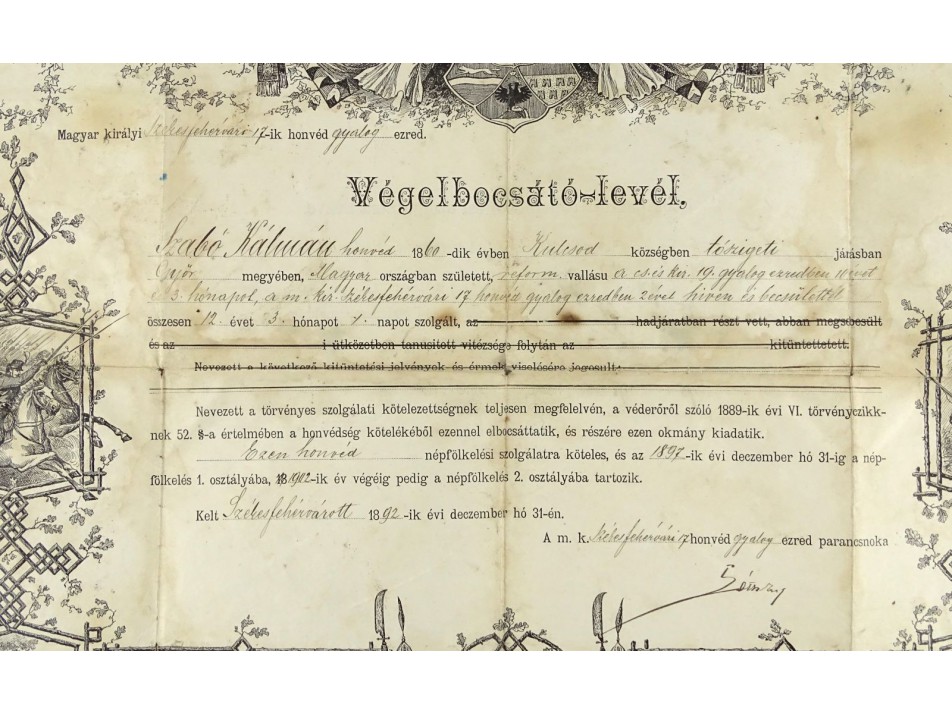 Magyar királyi Székesfehérvári 17-ik honvéd gyalog ezred.
Végelbocsátó-levél.
Szabó Kálmán honvéd 1860-dik évben Kulcsod községben tószigeti járásban
Győr megyében, Magyar országban született, reform. vallásu a cs. és kir. 19. gyalog ezredben 10 évet
és 3 hónapot, a m. kir. Székesfehérvári 17 honvéd gyalog ezredben 2 évet hiven és becsülettel
összesen 12. évet 3. hónapot 1. napot szolgált, az hadjáratban részt vett, abban megsebesült
és az i ütközetben tanusitott vitézsége folytán az kitüntettetett.
Nevezett a következő kitüntetési jelvények és érmek viselésére jogosult:
Nevezett a törvényes szolgálati kötelezettségnek teljesen megfelelvén, a véderőről szóló 1889-ik évi VI. törvényczikk-
nek 52. §-a értelmében a honvédség kötelékéből ezennel elbocsáttatik, és részére ezen okmány kiadatik.
Ezen honvéd népfölkelési szolgálatra köteles, és az 1897-ik évi deczember hó 31-ig a nép-
fölkelés 1. osztályába, 1902-ik év végéig pedig a népfölkelés 2. osztályába tartozik.
Kelt Székesfehérvárott 1892-ik évi deczember hó 31-én.
A m. k. Székesfehérvári 17 honvéd gyalog ezred parancsnoka